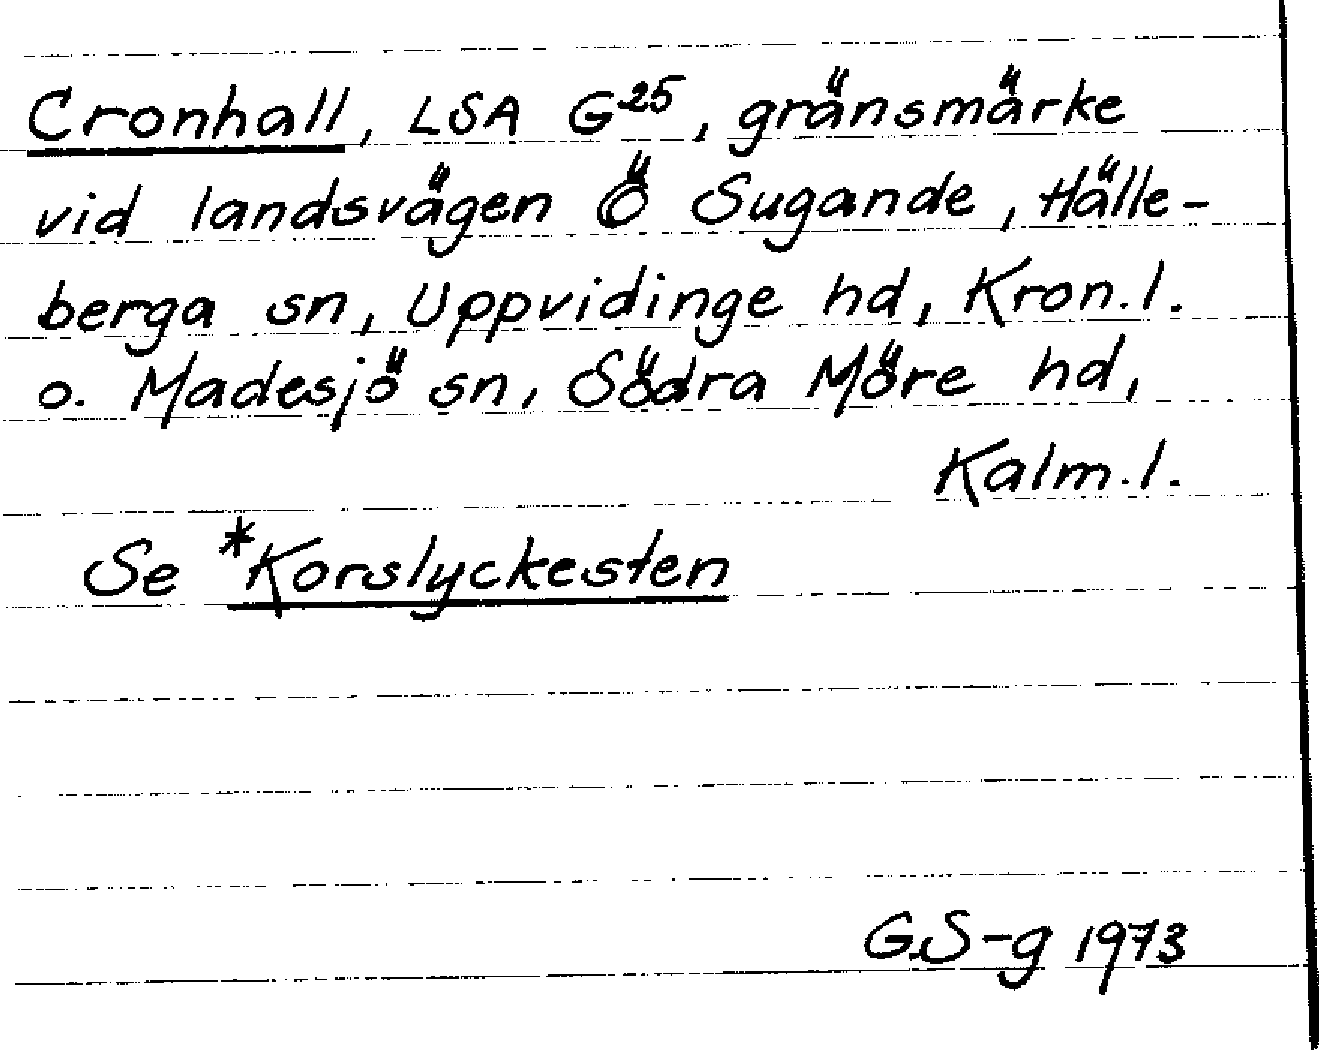 Cronhall, LSA G²⁵, gränsmärke
vid landsvägen Ö Sugande, Hälle-
berga sn, Uppvidinge hd, Kron.l.
o. Madesjö sn, Södra Möre hd,
Kalm.l.
Se *Korslyckesten
G.S-g 1973